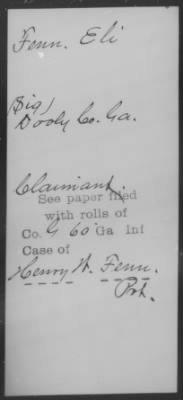 Fenn. Eli
(Sig)
Dooly Co. Ga.
Claimant.
See paper filed
with rolls of
Co. G 60 Ga Inf
Case of
Henry H. Fenn.
Prt.